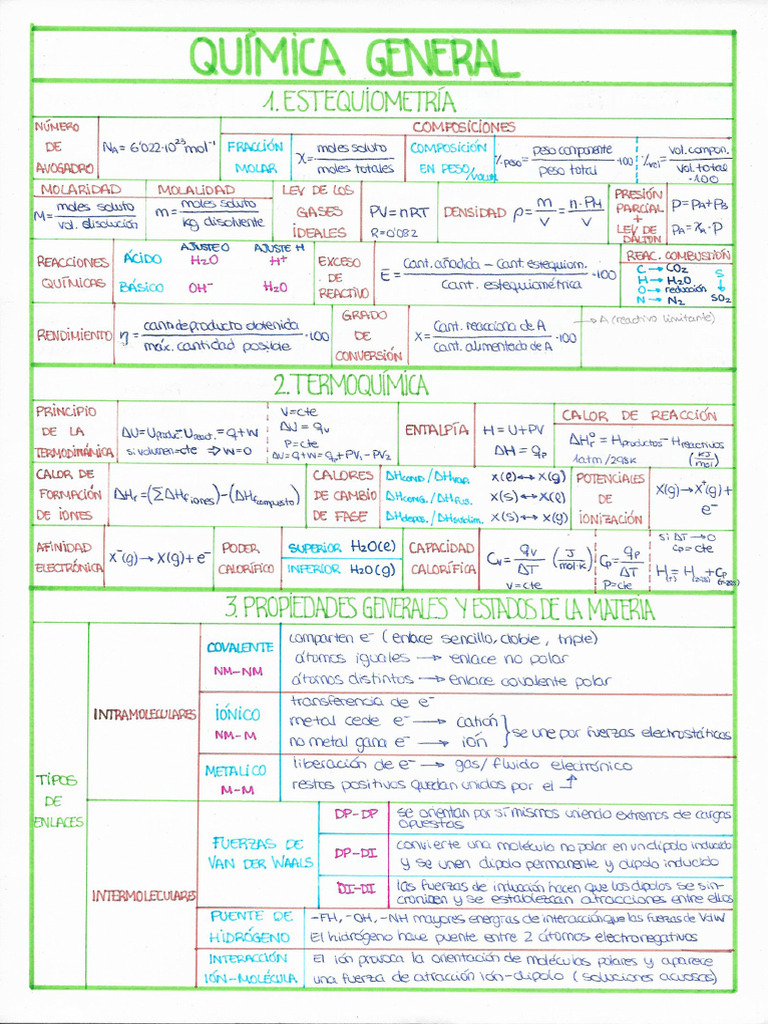 QUÍMICA GENERAL
1. ESTEQUIOMETRÍA
NÚMERO DE AVOGADRO
N_A = 6'022·10²³ mol⁻¹
COMPOSICIONES
FRACCIÓN MOLAR
χ = moles soluto / moles totales
COMPOSICIÓN EN PESO/VOLUM
%peso = peso componente / peso total ·100
%vol = vol. compon. / vol. total ·100
MOLARIDAD
M = moles soluto / vol. disolución
MOLALIDAD
m = moles soluto / kg disolvente
LEY DE LOS GASES IDEALES
PV = nRT
R = 0'082
DENSIDAD
ρ = m / V = n·PM / V
PRESIÓN PARCIAL + LEY DE DALTON
P = P_A + P_B
P_A = χ_A · P
REACCIONES QUÍMICAS
AJUSTE O AJUSTE H
ÁCIDO H₂O H⁺
BÁSICO OH⁻ H₂O
EXCESO DE REACTIVO
E = Cant. añadida - Cant estequiom. / cant. estequiométrica ·100
REAC. COMBUSTIÓN
C → CO₂
H → H₂O
O → reducción
N → N₂
S ↓ SO₂
RENDIMIENTO
η = cant. de producto obtenida / máx. cantidad posible ·100
GRADO DE CONVERSIÓN
X = Cant. reacciona de A / cant. alimentado de A ·100
→ A (reactivo limitante)
2. TERMOQUÍMICA
PRINCIPIO DE LA TERMODINÁMICA
ΔU = Uproduc - Ureact. = q + w
si volumen = cte ⇒ w = 0
V = cte
ΔU = q_v
P = cte
ΔU = q + w = q_p + PV₁ - PV₂
ENTALPÍA
H = U + PV
ΔH = q_p
CALOR DE REACCIÓN
ΔH°r = Hproductos - Hreactivos
1atm / 298K (KJ/mol)
CALOR DE FORMACIÓN DE IONES
ΔHr = (∑ΔHf iones) - (ΔHf compuesto)
CALORES DE CAMBIO DE FASE
ΔHcond. / ΔHvap. X(l) ↔ X(g)
ΔHcong. / ΔHfus. X(s) ↔ X(l)
ΔHdepos. / ΔHsublim. X(s) ↔ X(g)
POTENCIALES DE IONIZACIÓN
X(g) → X⁺(g) + e⁻
AFINIDAD ELECTRÓNICA
X⁻(g) → X(g) + e⁻
PODER CALORÍFICO
SUPERIOR H₂O(l)
INFERIOR H₂O(g)
CAPACIDAD CALORÍFICA
C_v = q_v / ΔT (J / mol·K)
V = cte
C_p = q_p / ΔT
P = cte
si ΔT → 0
C_p = cte
H(T) = H(298) + C_p (T-298)
3. PROPIEDADES GENERALES Y ESTADOS DE LA MATERIA
TIPOS DE ENLACES
INTRAMOLECULARES
COVALENTE
NM-NM
comparten e⁻ (enlace sencillo, doble, triple)
átomos iguales → enlace no polar
átomos distintos → enlace covalente polar
IÓNICO
NM-M
transferencia de e⁻
metal cede e⁻ → catión
no metal gana e⁻ → ión
} se une por fuerzas electrostáticas
METALICO
M-M
liberación de e⁻ → gas/fluido electrónico
restos positivos quedan unidos por el ↑
INTERMOLECULARES
FUERZAS DE VAN DER WAALS
DP-DP
se orientan por sí mismos uniendo extremos de cargas
opuestas
DP-DI
convierte una molécula no polar en un dipolo inducido
y se unen dipolo permanente y dipolo inducido
DI-DI
las fuerzas de inducción hacen que los dipolos se sin-
cronicen y se establezcan atracciones entre ellos
PUENTE DE HIDRÓGENO
-FH, -OH, -NH mayores energías de interacción que las fuerzas de VdW
El hidrógeno hace puente entre 2 átomos electronegativos
INTERACCIÓN IÓN-MOLÉCULA
El ión provoca la orientación de moléculas polares y aparece
una fuerza de atracción ión-dipolo (soluciones acuosas)